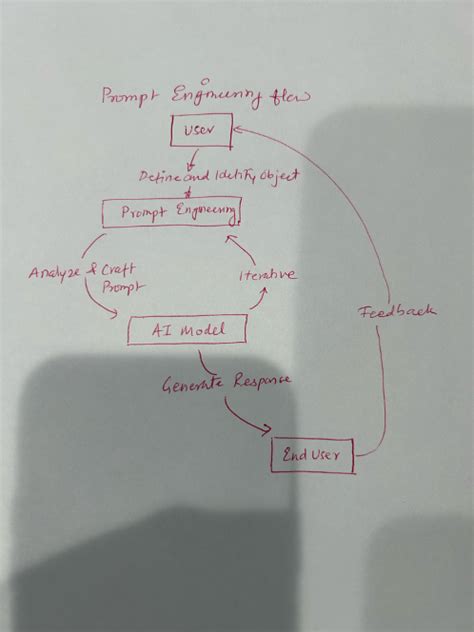 Prompt Engineering flow
User
Define and Identify Object
Prompt Engineering
Analyze & Craft
Prompt
Iterative
Feedback
AI Model
Generate Response
End User